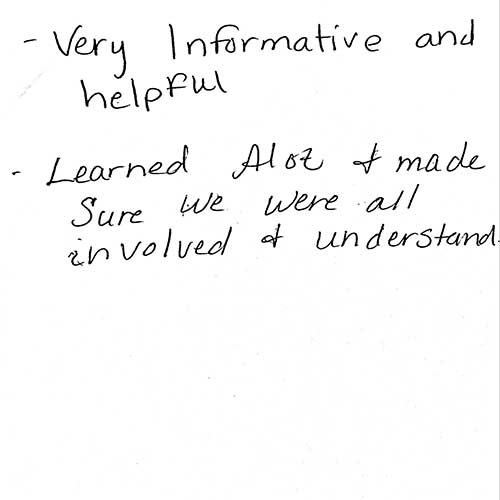 - Very Informative and
helpful
- Learned Alot & made
Sure we were all
involved & understand.